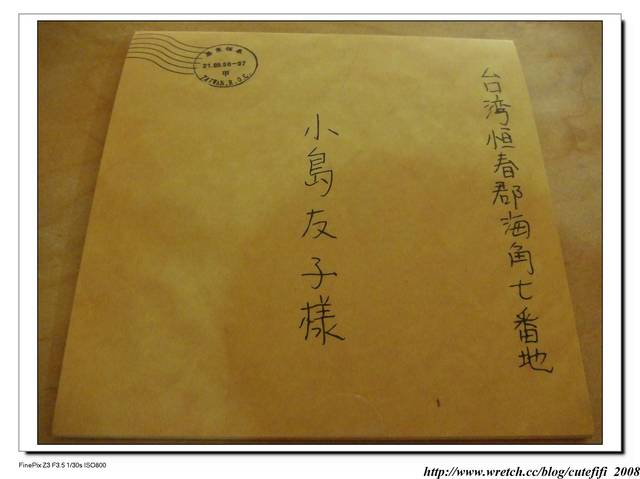 台湾恒春郡海角七番地
小島友子様
21.08.08-07
甲
TAIWAN.R.O.C.
FinePix Z3 F3.5 1/30s ISO800
http://www.wretch.cc/blog/cutefifi 2008